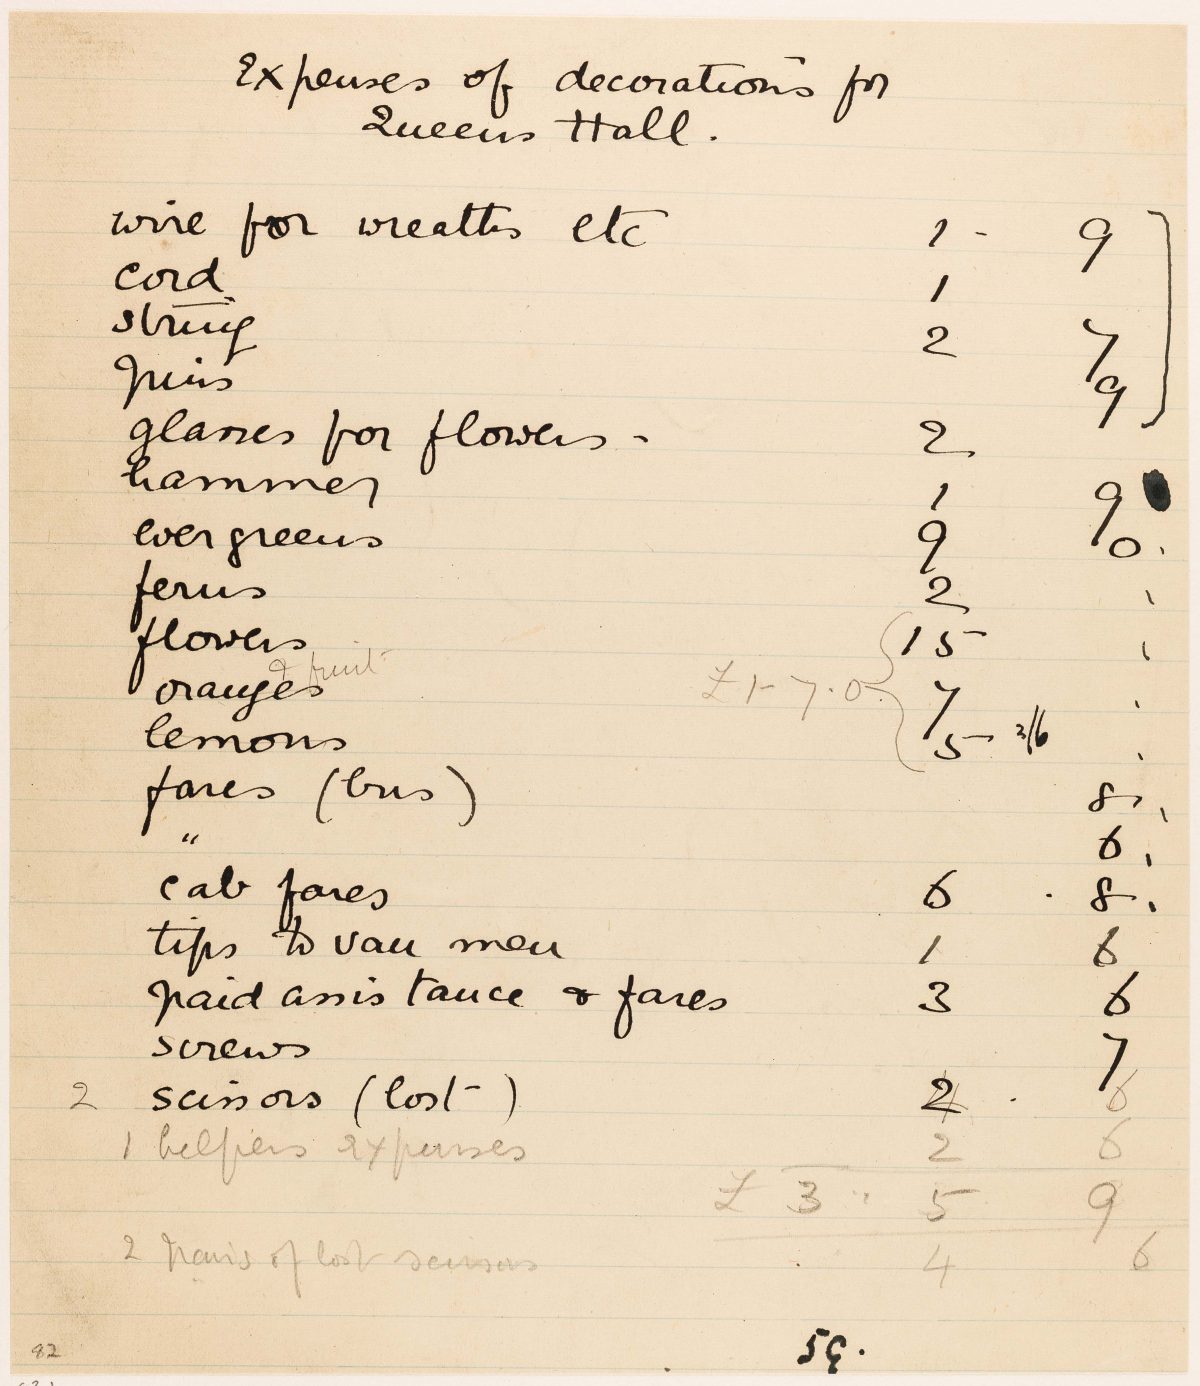 Expenses of decorations for
Queens Hall.
wire for wreaths etc 1 - 9
cord 1
string 2 7
pins 9
glasses for flowers - 2
hammer 1 9
evergreens 9 0
ferns 2
flowers 15
& fruit
oranges £1-7.0 7
lemons 5 2/6
fares (bus) 8
" 6
cab fares 6 . 8
tips to van men 1 6
paid assistance & fares 3 6
screws 7
2 scissors (lost) 2 . 6
1 helpers expenses 2 6
£ 3 " 5 9
2 pairs of lost scissors 4 6
59.
82